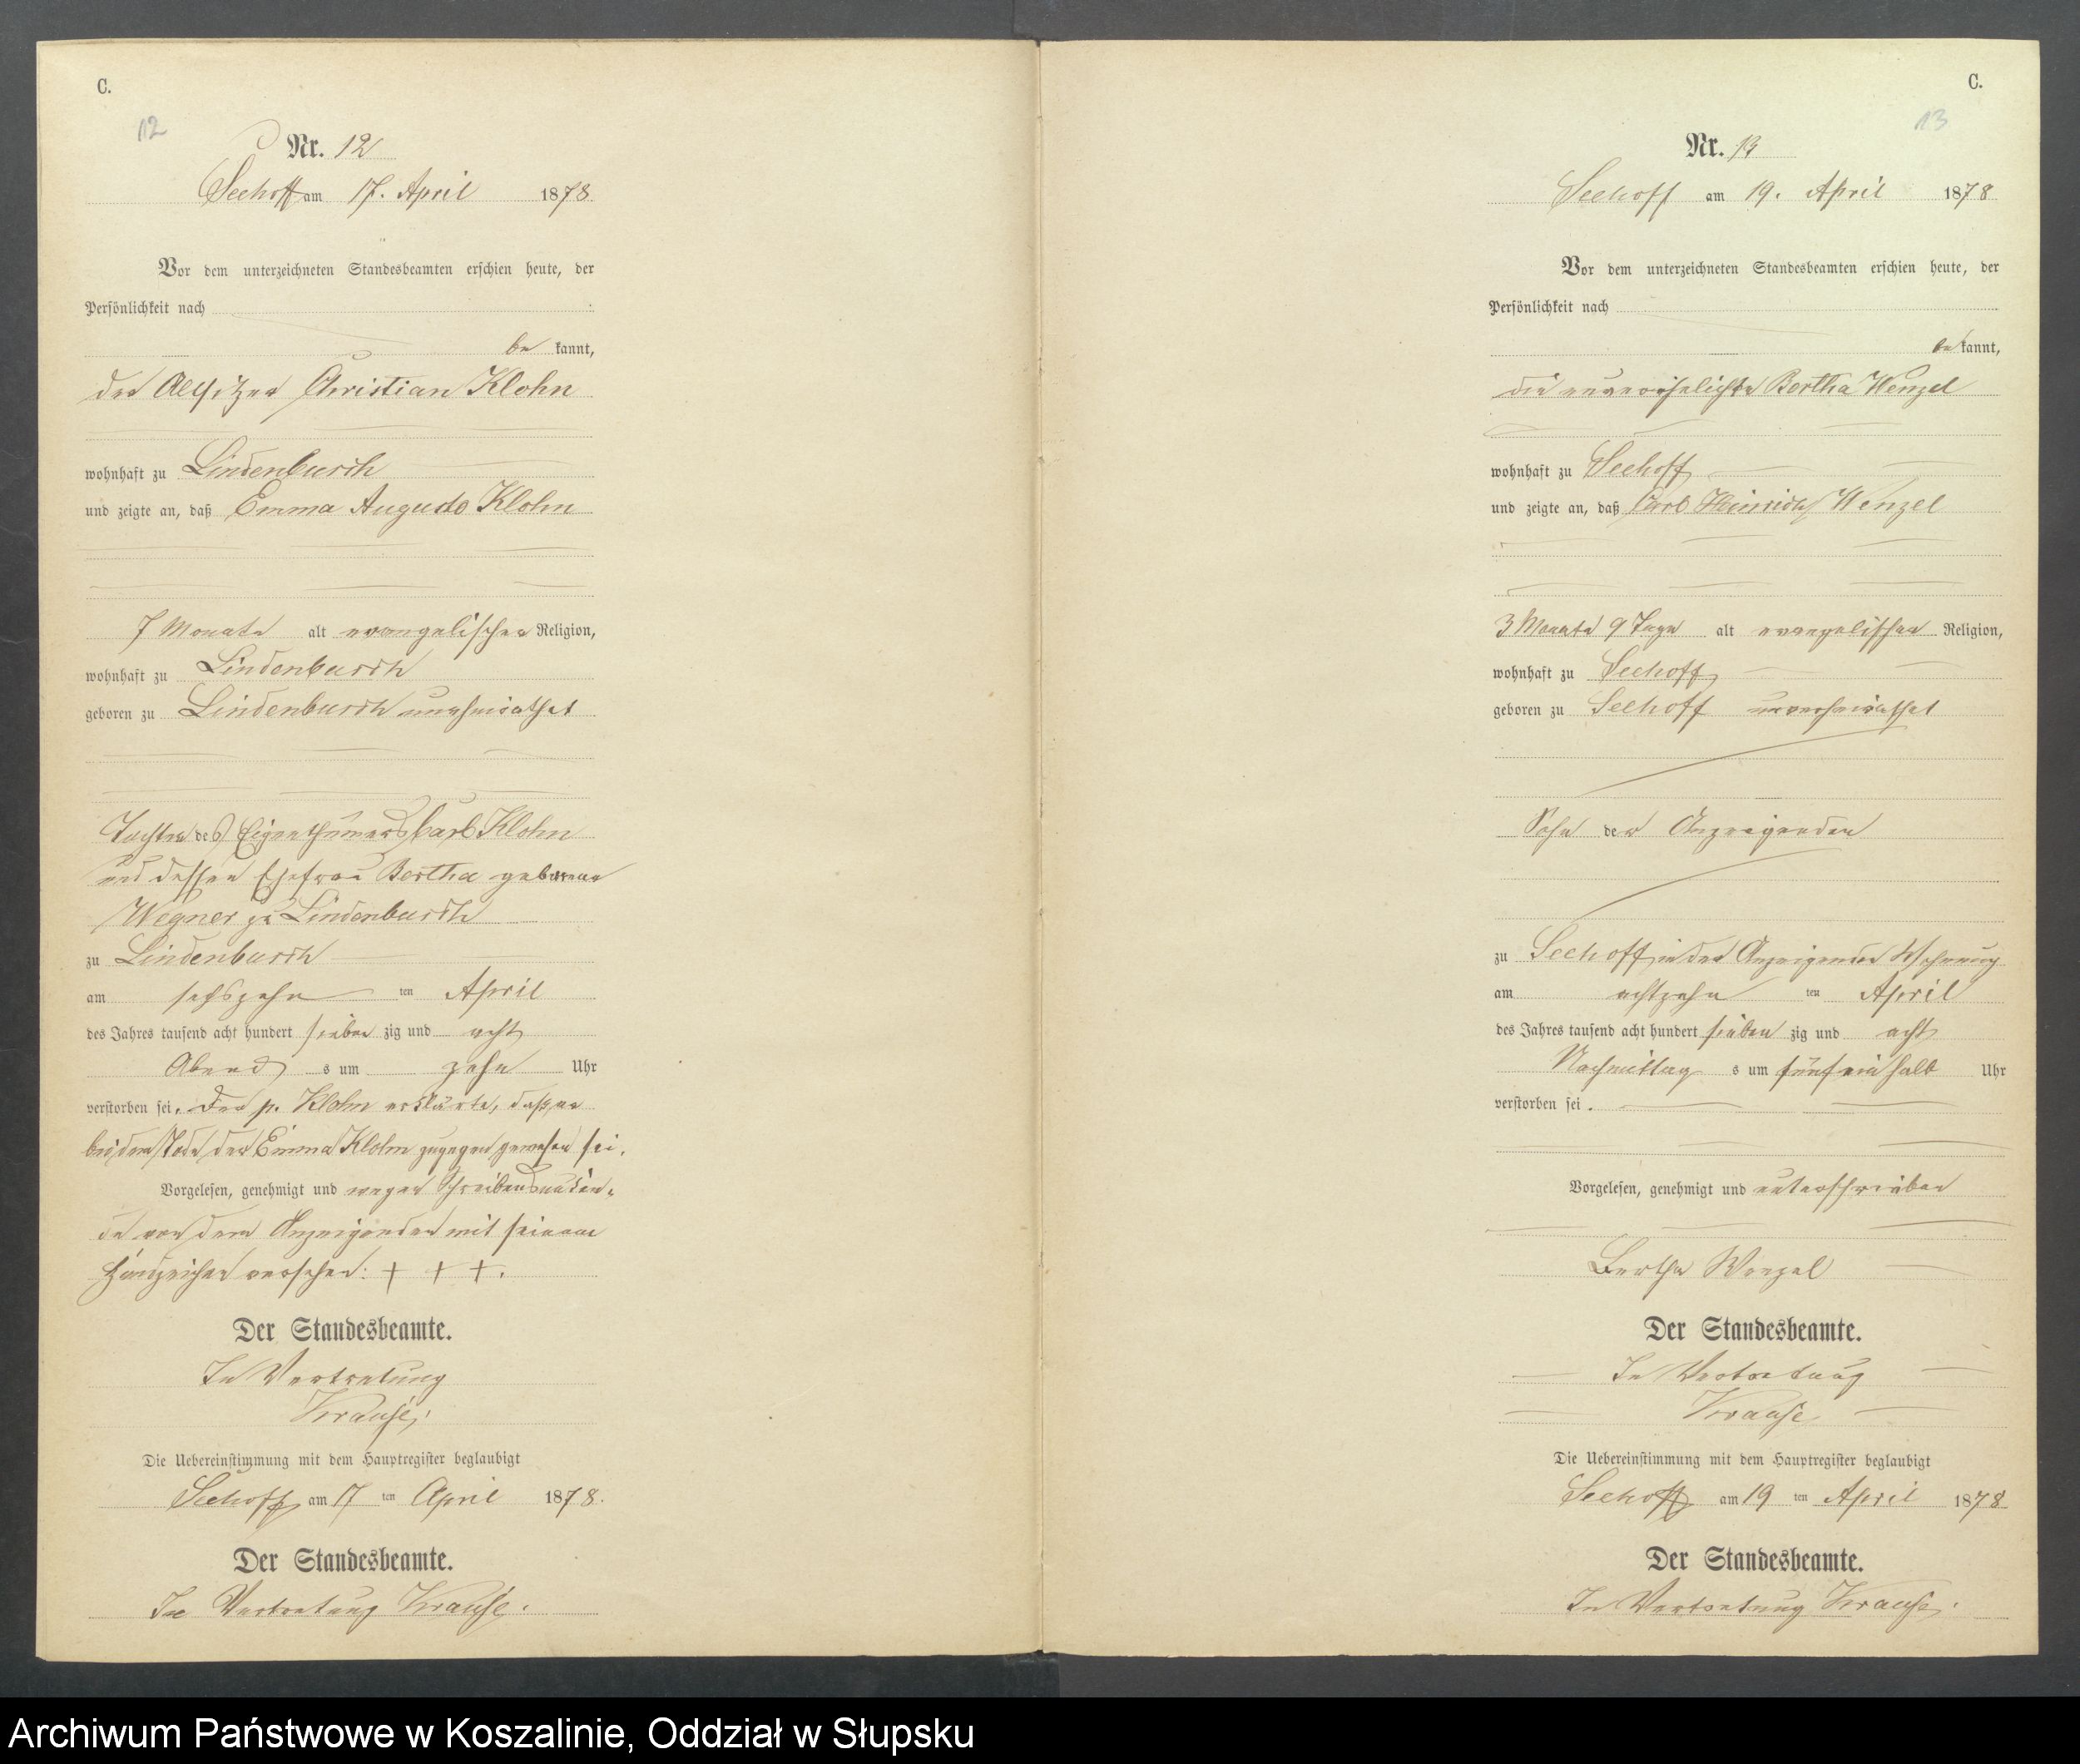 C.
12
Nr. 12
Seehoff am 17. April 1878
Vor dem unterzeichneten Standesbeamten erschien heute, der
Persönlichkeit nach
be kannt,
der Altsitzer Christian Klohn
wohnhaft zu Lindenbusch
und zeigte an, daß Emma Auguste Klohn
7 Monate alt evangelischer Religion,
wohnhaft zu Lindenbusch
geboren zu Lindenbusch unverheirathet
Tochter des Eigenthümers Carl Klohn
und dessen Ehefrau Bertha geborene
Wegner zu Lindenbusch
zu Lindenbusch
am sechszehn ten April
des Jahres tausend acht hundert sieben zig und acht
Abend s um zehn Uhr
verstorben sei. Der p. Klohn erklärte, daß er
bei dem Tode der Emma Klohn zugegen gewesen sei.
Vorgelesen, genehmigt und wegen Schreibensunkun-
de von dem Anzeigenden mit seinem
Handzeichen versehen: + + +.
Der Standesbeamte.
In Vertretung
Krause
Die Uebereinstimmung mit dem Hauptregister beglaubigt
Seehoff am 17 ten April 1878.
Der Standesbeamte.
In Vertretung Krause.
C.
13
Nr. 13
Seehoff am 19. April 1878
Vor dem unterzeichneten Standesbeamten erschien heute, der
Persönlichkeit nach
be kannt,
die unverehelichte Bertha Wenzel
wohnhaft zu Seehoff
und zeigte an, daß Carl Heinrich Wenzel
3 Monate 9 Tage alt evangelischer Religion,
wohnhaft zu Seehoff
geboren zu Seehoff unverheirathet
Sohn der Anzeigenden
zu Seehoff in der Anzeigenden Wohnung
am achtzehn ten April
des Jahres tausend acht hundert sieben zig und acht
Nachmittag s um fünfeinhalb Uhr
verstorben sei.
Vorgelesen, genehmigt und unterschrieben
Bertha Wenzel
Der Standesbeamte.
In Vertretung
Krause
Die Uebereinstimmung mit dem Hauptregister beglaubigt
Seehoff am 19 ten April 1878
Der Standesbeamte.
In Vertretung Krause.
Archiwum Państwowe w Koszalinie, Oddział w Słupsku